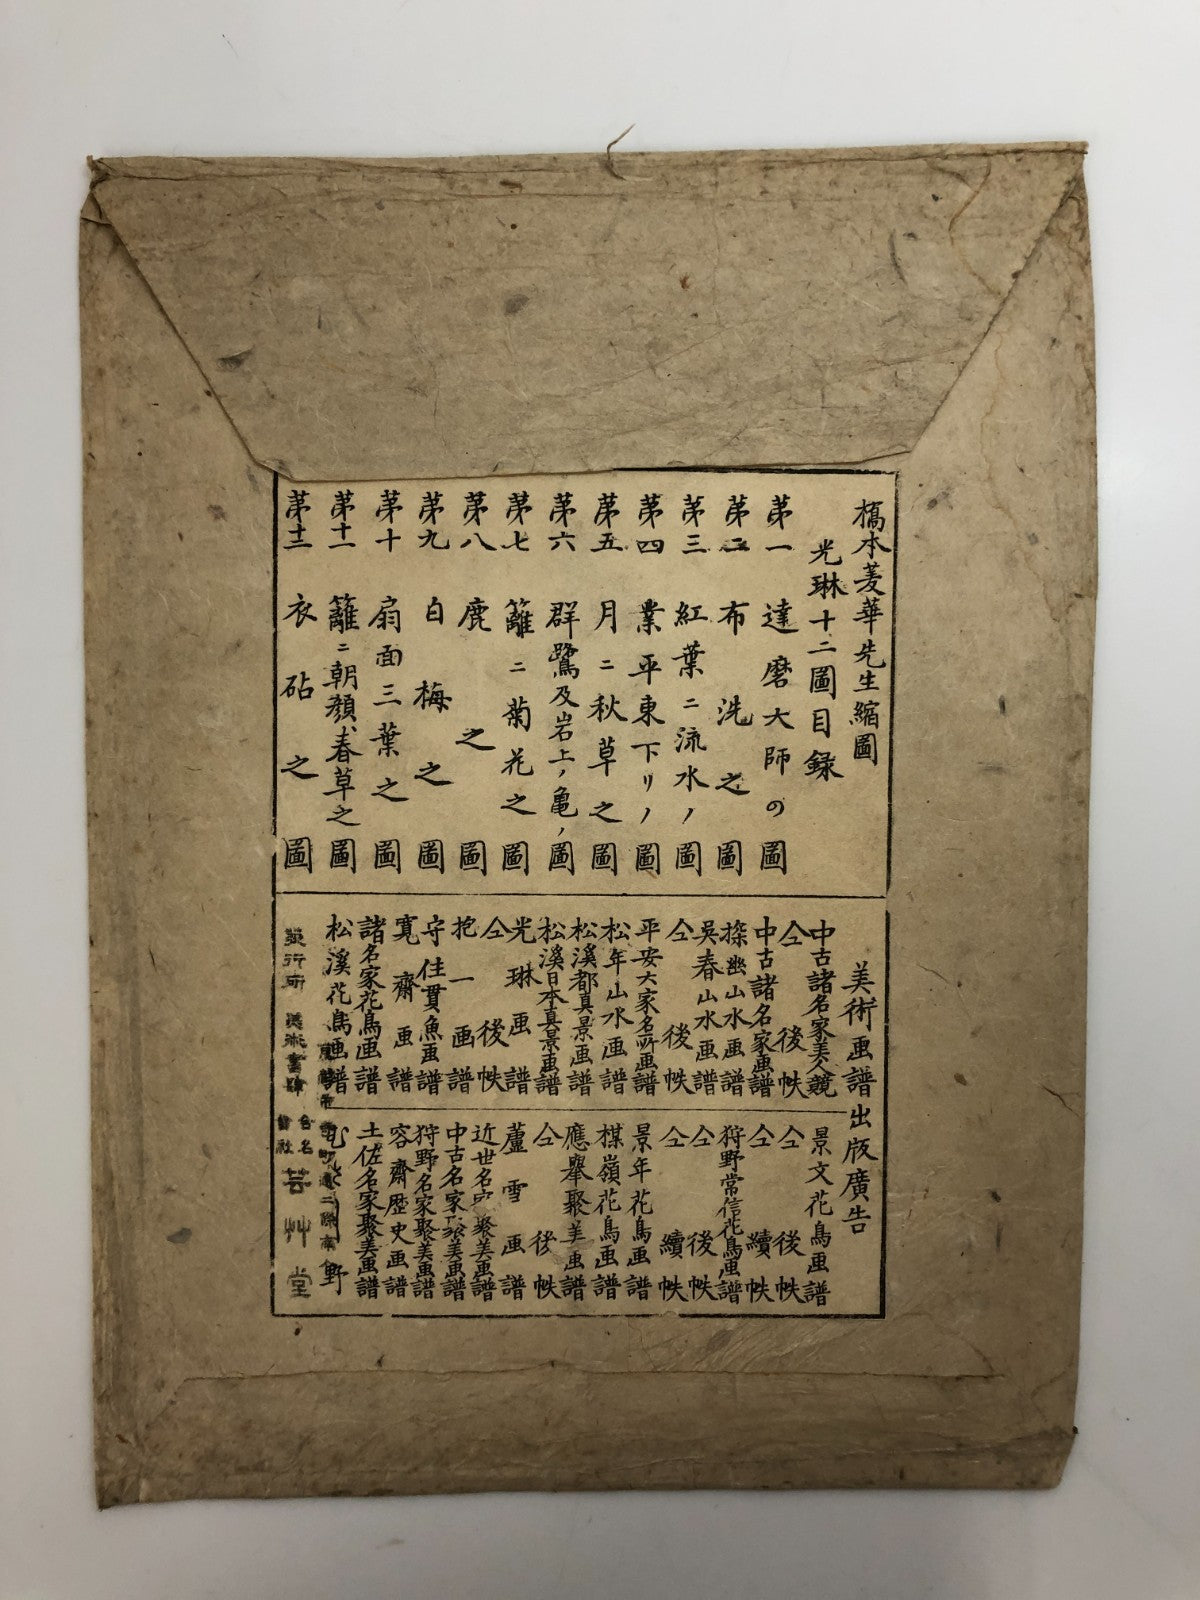 橋本菱華先生縮圖
光琳十二圖目録
第一 達磨大師の圖
第二 布洗之圖
第三 紅葉ニ流水ノ圖
第四 業平東下リノ圖
第五 月ニ秋草之圖
第六 群鷺及岩上ノ亀ノ圖
第七 籬ニ菊花之圖
第八 鹿之圖
第九 白梅之圖
第十 扇面三葉之圖
第十一 籬ニ朝顔、春草之圖
第十二 衣砧之圖
美術画譜出版廣告
中古諸名家美人競
仝後帙
中古諸名家画譜
探幽山水画譜
吳春山水画譜
仝後帙
平安大家名所画譜
松年山水画譜
松溪都真景画譜
松溪日本真景画譜
光琳画譜
仝後帙
抱一画譜
守住貫魚画譜
寛齋画譜
諸名家花鳥画譜
松溪花鳥画譜
景文花鳥画譜
仝後帙
仝續帙
狩野常信花鳥画譜
仝後帙
仝續帙
景年花鳥画譜
楳嶺花鳥画譜
應擧聚美画譜
仝後帙
蘆雪画譜
近世名家聚美画譜
中古名家聚美画譜
狩野名家聚美画譜
容齋歴史画譜
土佐名家聚美画譜
發行所 美術書肆 合名會社 芸艸堂